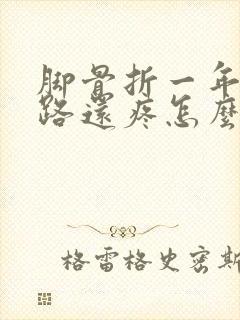 脚骨折一年
路還疼怎麼
格雷格史密斯